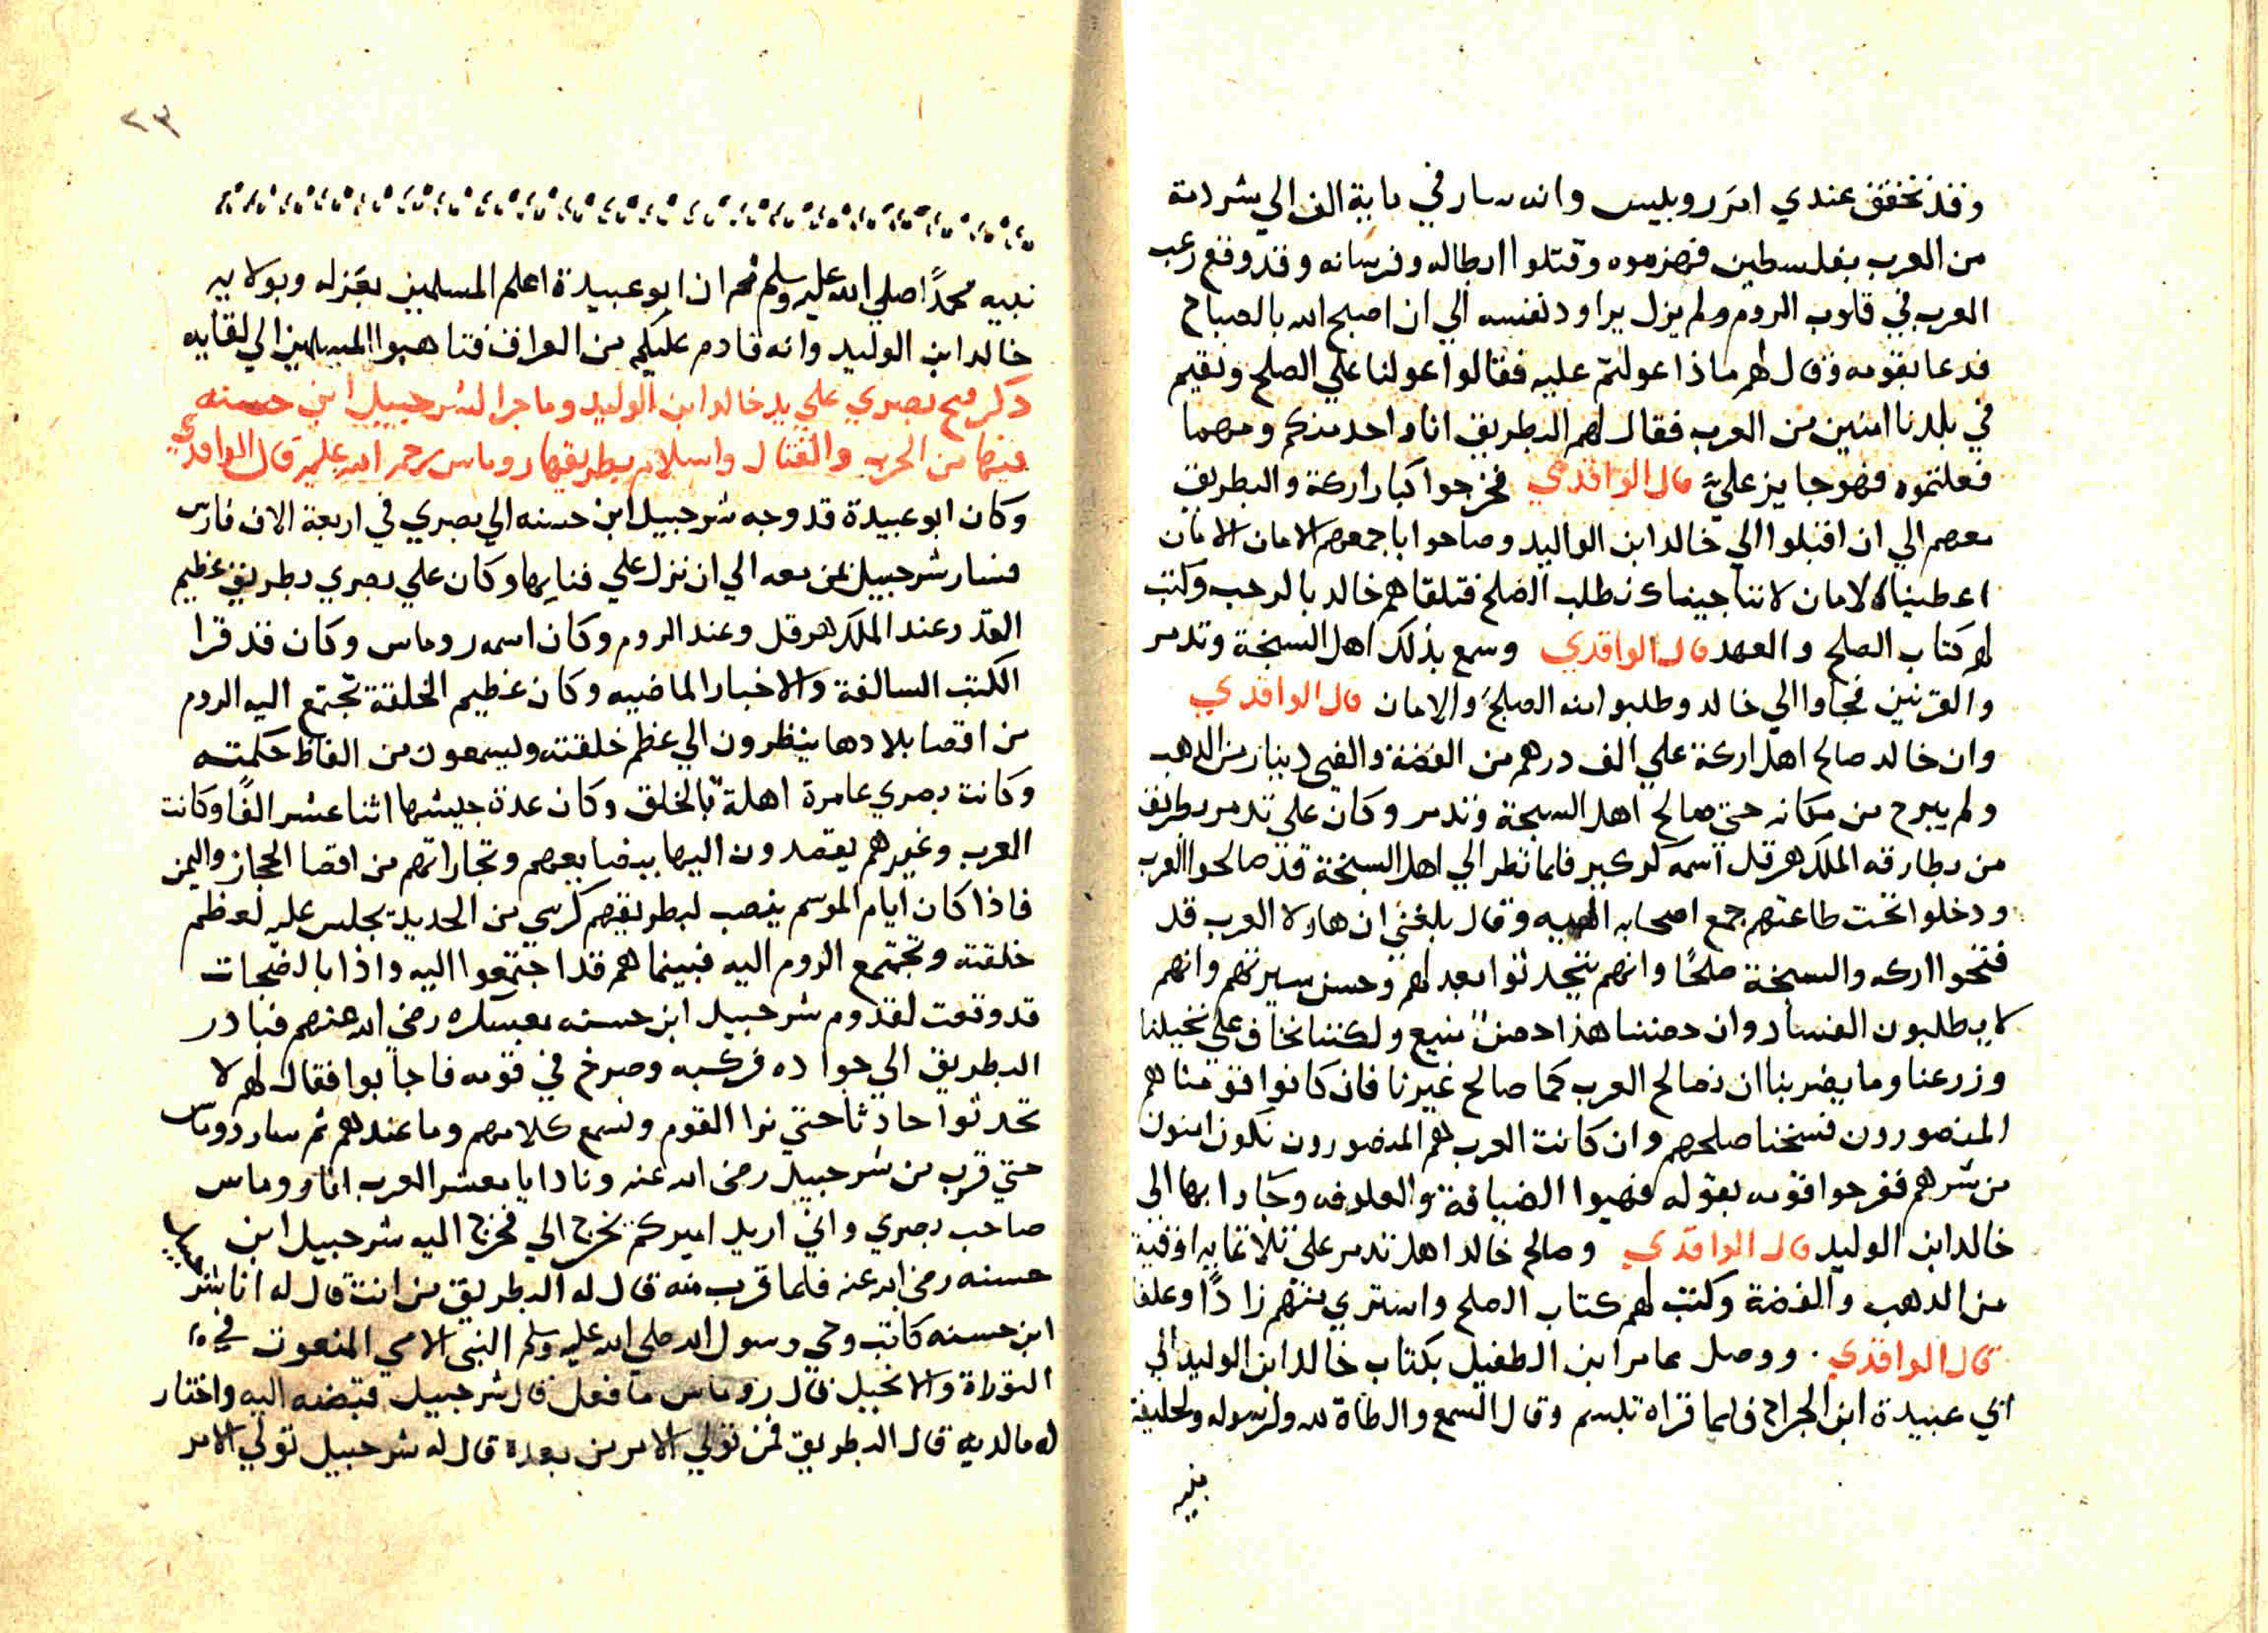 وقد تحقق عندي امر روبيس وانه سار في ماية الف الي شردمة
من العرب بفلسطين فهزموه وقتلوا ابطاله وفرسانه وقد وقع رعب
العرب في قلوب الروم ولم يزل يراود نفسه الي ان اصبح الله بالصباح
فدعا بقومه وقال لهم ماذا عولتم عليه فقالوا عولنا علي الصلح ونقيم
في بلدنا امنين من العرب فقال لهم البطريق انا واحد منكم ومهما
فعلتموه فهو جايز عليّ قال الواقدي فخرجوا كبار اركة والبطريق
معهم الي ان اقبلوا الي خالد ابن الواليد وصاحوا باجمعهم الامان الامان
اعطينا الامان لاننا جيناك نطلب الصلح فتلقاهم خالد بالرحب وكتب
لهم كتاب الصلح والعهد قال الواقدي وسمع بذلك اهل السخنة وتدمر
والقرنين فجاوا الي خالد وطلبوا منه الصلح والامان قال الواقدي
وان خالد صالح اهل اركة علي الف درهم من الفضة والفي دينار من الدهب
ولم يبرح من مكانه حتي صالح اهل السخنة وتدمر وكان علي تدمر بطريق
من بطارقه الملك هرقل اسمه كوكبر فلما نظر الي اهل السخنة قد صالحوا العرب
ودخلوا تحت طاعتهم جمع اصحابه اليه وقال بلغني ان هاولا العرب قد
فتحوا اركه والسخنة صلحًا وانهم يتحدثوا بعدلهم وحسن سيرتهم وانهم
لا يطلبون الفساد وان حصننا هذا حصنٌ منيع ولكننا نخاف علي نخيلنا
وزرعنا وما يضرنا ان نصالح العرب كما صالح غيرنا فان كانوا قومنا هم
المنصورون فسخنا صلحهم وان كانت العرب هم المنصورون نكون امنون
من شرهم ففرحوا قومه بقوله فهيوا الضيافة والعلوفه وجاوا بها الي
خالد ابن الوليد قال الواقدي وصالح خالد اهل تدمر علي ثلاثمايه اوقية
من الدهب والفضة وكتب لهم كتاب الصلح واشتري منهم زادًا وعلفا
قال الواقدي ووصل عامر ابن الطفيل بكتاب خالد ابن الوليد الي
ابي عبيدة ابن الجراح فلما قراه تبسم وقال السمع والطاة لله ولرسوله ولخليفة
نبيه
٢٣
نبيه محمدًا صلي الله عليه وسلم ثم ان ابو عبيدة اعلم المسلمين بعزله وبولايه
خالد ابن الوليد وانه قادم عليكم من العراق فتاهبوا المسلمين الي لقايه
ذكر فتح بصري علي يد خالد ابن الوليد وما جرا لشرحبيل ابن حسنه
فيها من الحرب والقتال واسلام بطريقها روماس رحمه الله عليه قال الواقدي
وكان ابو عبيدة قد وجه شرحبيل ابن حسنه الي بصري في اربعة الاف فارس
فسار شرحبيل بمن معه الي ان نزل علي فنايها وكان علي بصري بطريق عظيم
القدر عند الملك هرقل وعند الروم وكان اسمه روماس وكان قد قرا
الكتب السالفة والاخبار الماضيه وكان عظيم الخلقة تجتمع اليه الروم
من اقصا بلادها ينظرون الي عظم خلقته ويسمعون من الفاظ حكمته
وكانت بصري عامرة اهلة بالخلق وكان عدة جيشها اثنا عشر الفًا وكانت
العرب وغيرهم يقصدون اليها ببضايعهم وتجاراتهم من اقصا الحجاز واليمن
فاذا كان ايام الموسم ينصب لبطريقهم كرسي من الحديد يجلس عليه لعظم
خلقته وتجتمع الروم اليه فبينما هم قد اجتمعوا اليه واذا بالضجات
قد وقعت لقدوم شرحبيل ابن حسنه بعسكره رضي الله عنهم فبادر
البطريق الي جواده فركبه وصرخ في قومه فاجابوا فقال لهم لا
تحدثوا حادثا حتي نرا القوم ونسمع كلامهم وما عندهم ثم سار روماس
حتي قرب من شرحبيل رضي الله عنه ونادا يا معشر العرب انا روماس
صاحب بصري واني اريد اميركم يخرج الي فخرج اليه شرحبيل ابن
حسنه رضي الله عنه فلما قرب منه قال له البطريق من انت قال له انا شرحبيل
ابن حسنه كاتب وحي رسول الله صلي الله عليه وسلم النبي الامي المنعوت في
التوراة والانجيل قال روماس ما فعل قال شرحبيل قبضه اليه واختار
له ما لديه قال البطريق فمن تولي الامر من بعدة قال له شرحبيل تولي الامر